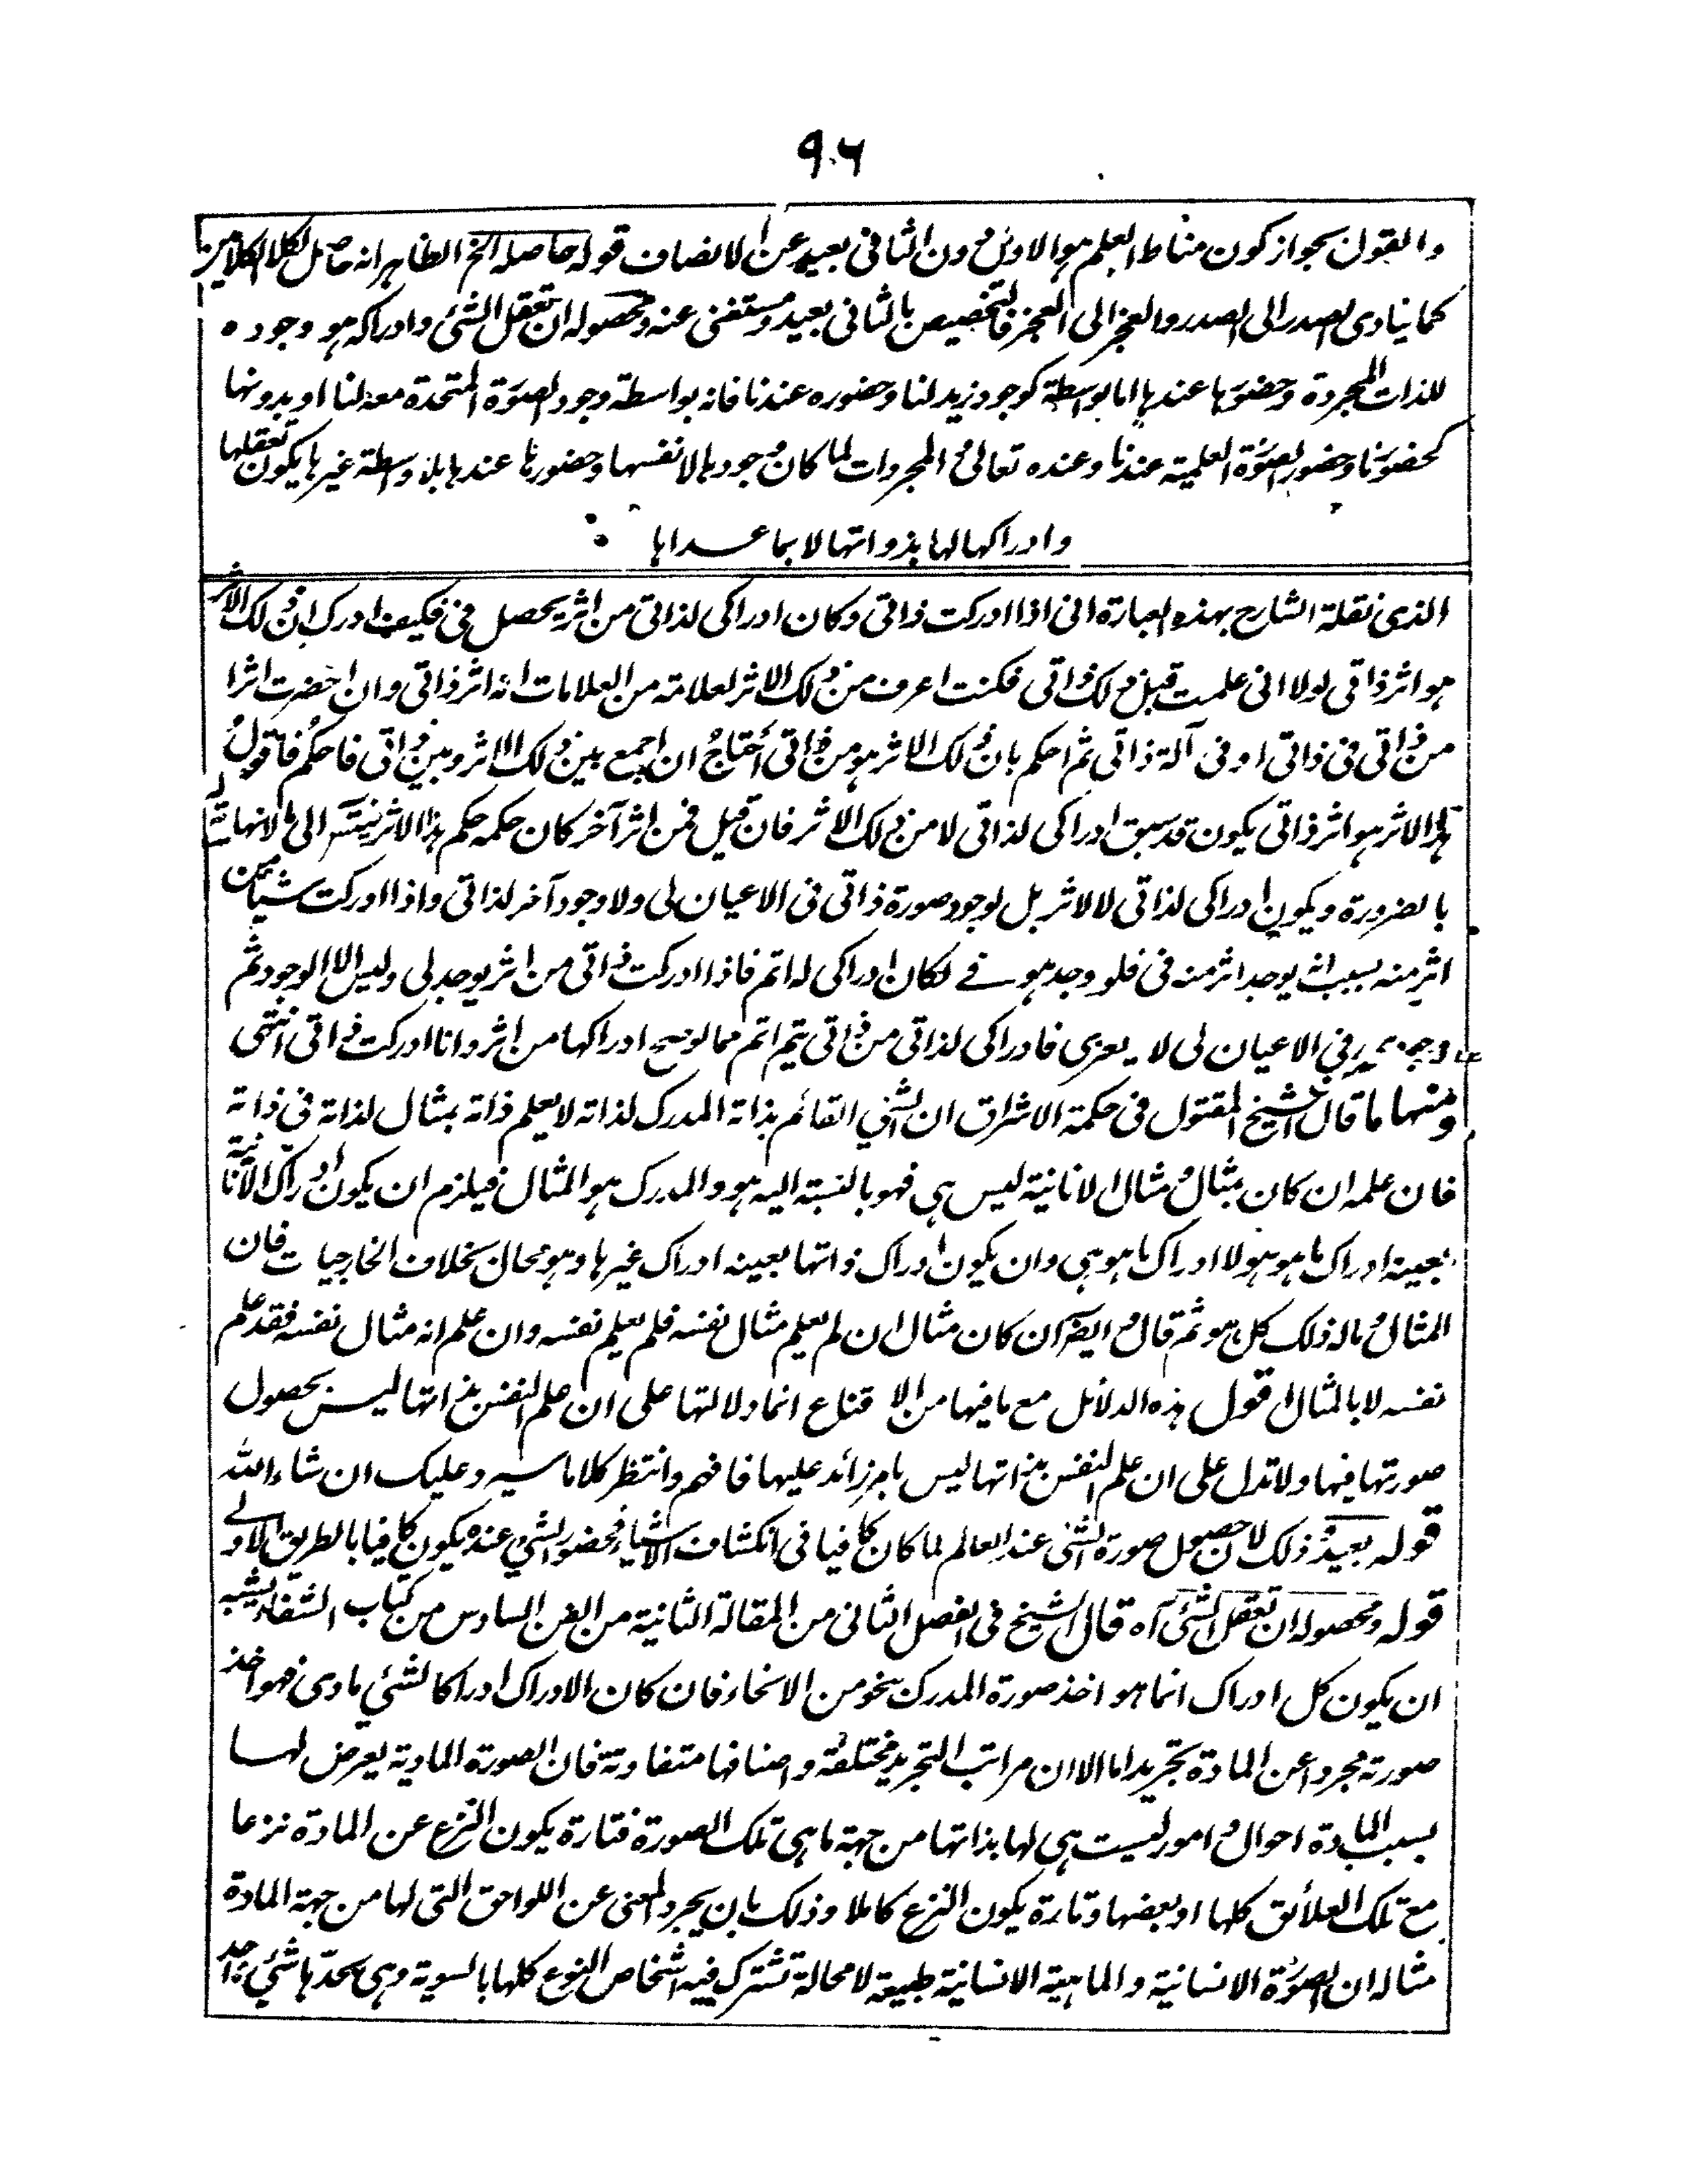 ٩٠٦
والقول بجواز كون مناط العلم هو الاول دون الثاني بعيد عن الانصاف قوله حاصله الخ الظاهر انه حاصل لكلا الكلامين
كما ينادى الصدر الى الصدر والعجز الى العجز فالتخصيص بالثاني بعيد ومستغنى عنه ومحصوله ان تعقل الشئ وادراكه هو وجوده
للذات المجردة وحضورها عندها اما بواسطة كوجود زيد لنا وحضوره عندنا فانه بواسطة وجود الصورة المتحدة معه لنا او بدونها
كحضورنا وحضور الصورة العلمية عندنا وعنده تعالى و المجردات لما كان وجودها لانفسها وحضورها عندها بلا واسطة غيرها يكون تعقلها
وادراكها لها بذواتها لا بما عداها
الذى نقلة الشارح بهذه العبارة انى اذا ادركت ذاتى وكان ادراكى لذاتى من اثر يحصل فى فكيف ادرك ان ذلك الاثر
هو اثر ذاتى لولا انى علمت قبل ذلك ذاتى فكنت اعرف من ذلك الاثر لعلامة من العلامات انه اثر ذاتى وان احضرت اثرا
من ذاتى فى ذاتى او فى آلة ذاتى ثم احكم بان ذلك الاثر هو من ذاتى أحتاج ان اجمع بين ذلك الاثر وبين ذاتى فاحكم فاقول
هذا الاثر هو اثر ذاتى يكون قد سبق ادراكى لذاتى لا من ذلك الاثر فان قيل فمن اثر آخر كان حكمه حكم هذا الاثر الى ما لا نهاية
بالضرورة ويكون ادراكى لذاتى لا لاثر بل لوجود صورة ذاتى فى الاعيان لى ولا وجود آخر لذاتى واذا ادركت شيأ من
اثر منه بسبب انه يوجد اثر منه فى فلو وجد هو فى لكان ادراكى له اتم فاذا ادركت ذاتى من اثر يوجد لى وليس الا الوجود ثم
فى الاعيان لى لا يعرى فادراكى لذاتى من ذاتى يتم اتم مما ادراكها من اثر وانا ادركت ذاتى انتهى
ومنها ما قال الشيخ المقتول فى حكمة الاشراق ان الشئ القائم بذاته المدرك لذاته لا يعلم ذاته بمثال لذاته فى ذاته
فان علمه ان كان بمثال و مثال الانانية ليس هى فهو بالنسبة اليه هو والمدرك هو المثال فيلزم ان يكون ادراك الانانية
بعينه ادراك ما هو هو لا ادراك ما هو هى وان يكون ادراك ذاتها بعينه ادراك غيرها وهو محال بخلاف الخارجيات فان
المثال و ماله ذلك كل هو ثم قال و ايضا ان كان مثال ان لم يعلم مثال نفسه فلم يعلم نفسه وان علم انه مثال نفسه فقد علم
نفسه لا بالمثال اقول هذه الدلائل مع ما فيها من الاقناع انما دلالتها على ان علم النفس بذاتها ليس بحصول
صورتها فيها ولا تدل على ان علم النفس بذاتها ليس بامر زائد عليها فافهم وانتظر كلاما سيرد عليك ان شاء الله
قوله بعيد و ذلك لان حصول صورة الشئ عند العالم لما كان كافيا فى انكشاف الاشياء فحضور الشئ عنده يكون كافيا بالطريق الاولى
قوله ومحصوله ان تعقل الشئ آه قال الشيخ فى الفصل الثانى من المقالة الثانية من الفن السادس من كتاب الشفاء يشبه
ان يكون كل ادراك انما هو اخذ صورة المدرك بنحو من الانحاء فان كان الادراك ادراكا لشئ مادى فهو اخذ
صورته مجردا عن المادة تجريدا ما الا ان مراتب التجريد مختلفة واصنافها متفاوتة فان الصورة المادية يعرض لها
بسبب المادة احوال و امور ليست هى لها بذاتها من جهة ما هى تلك الصورة فتارة يكون النزع عن المادة نزعا
مع تلك العلائق كلها او بعضها وتارة يكون النزع كاملا وذلك بان يجرد المعنى عن اللواحق التى لها من جهة المادة
مثاله ان الصورة الانسانية والماهية الانسانية طبيعة لا محالة تشترك فيه اشخاص النوع كلها بالسوية وهى بحدها شئ واحد